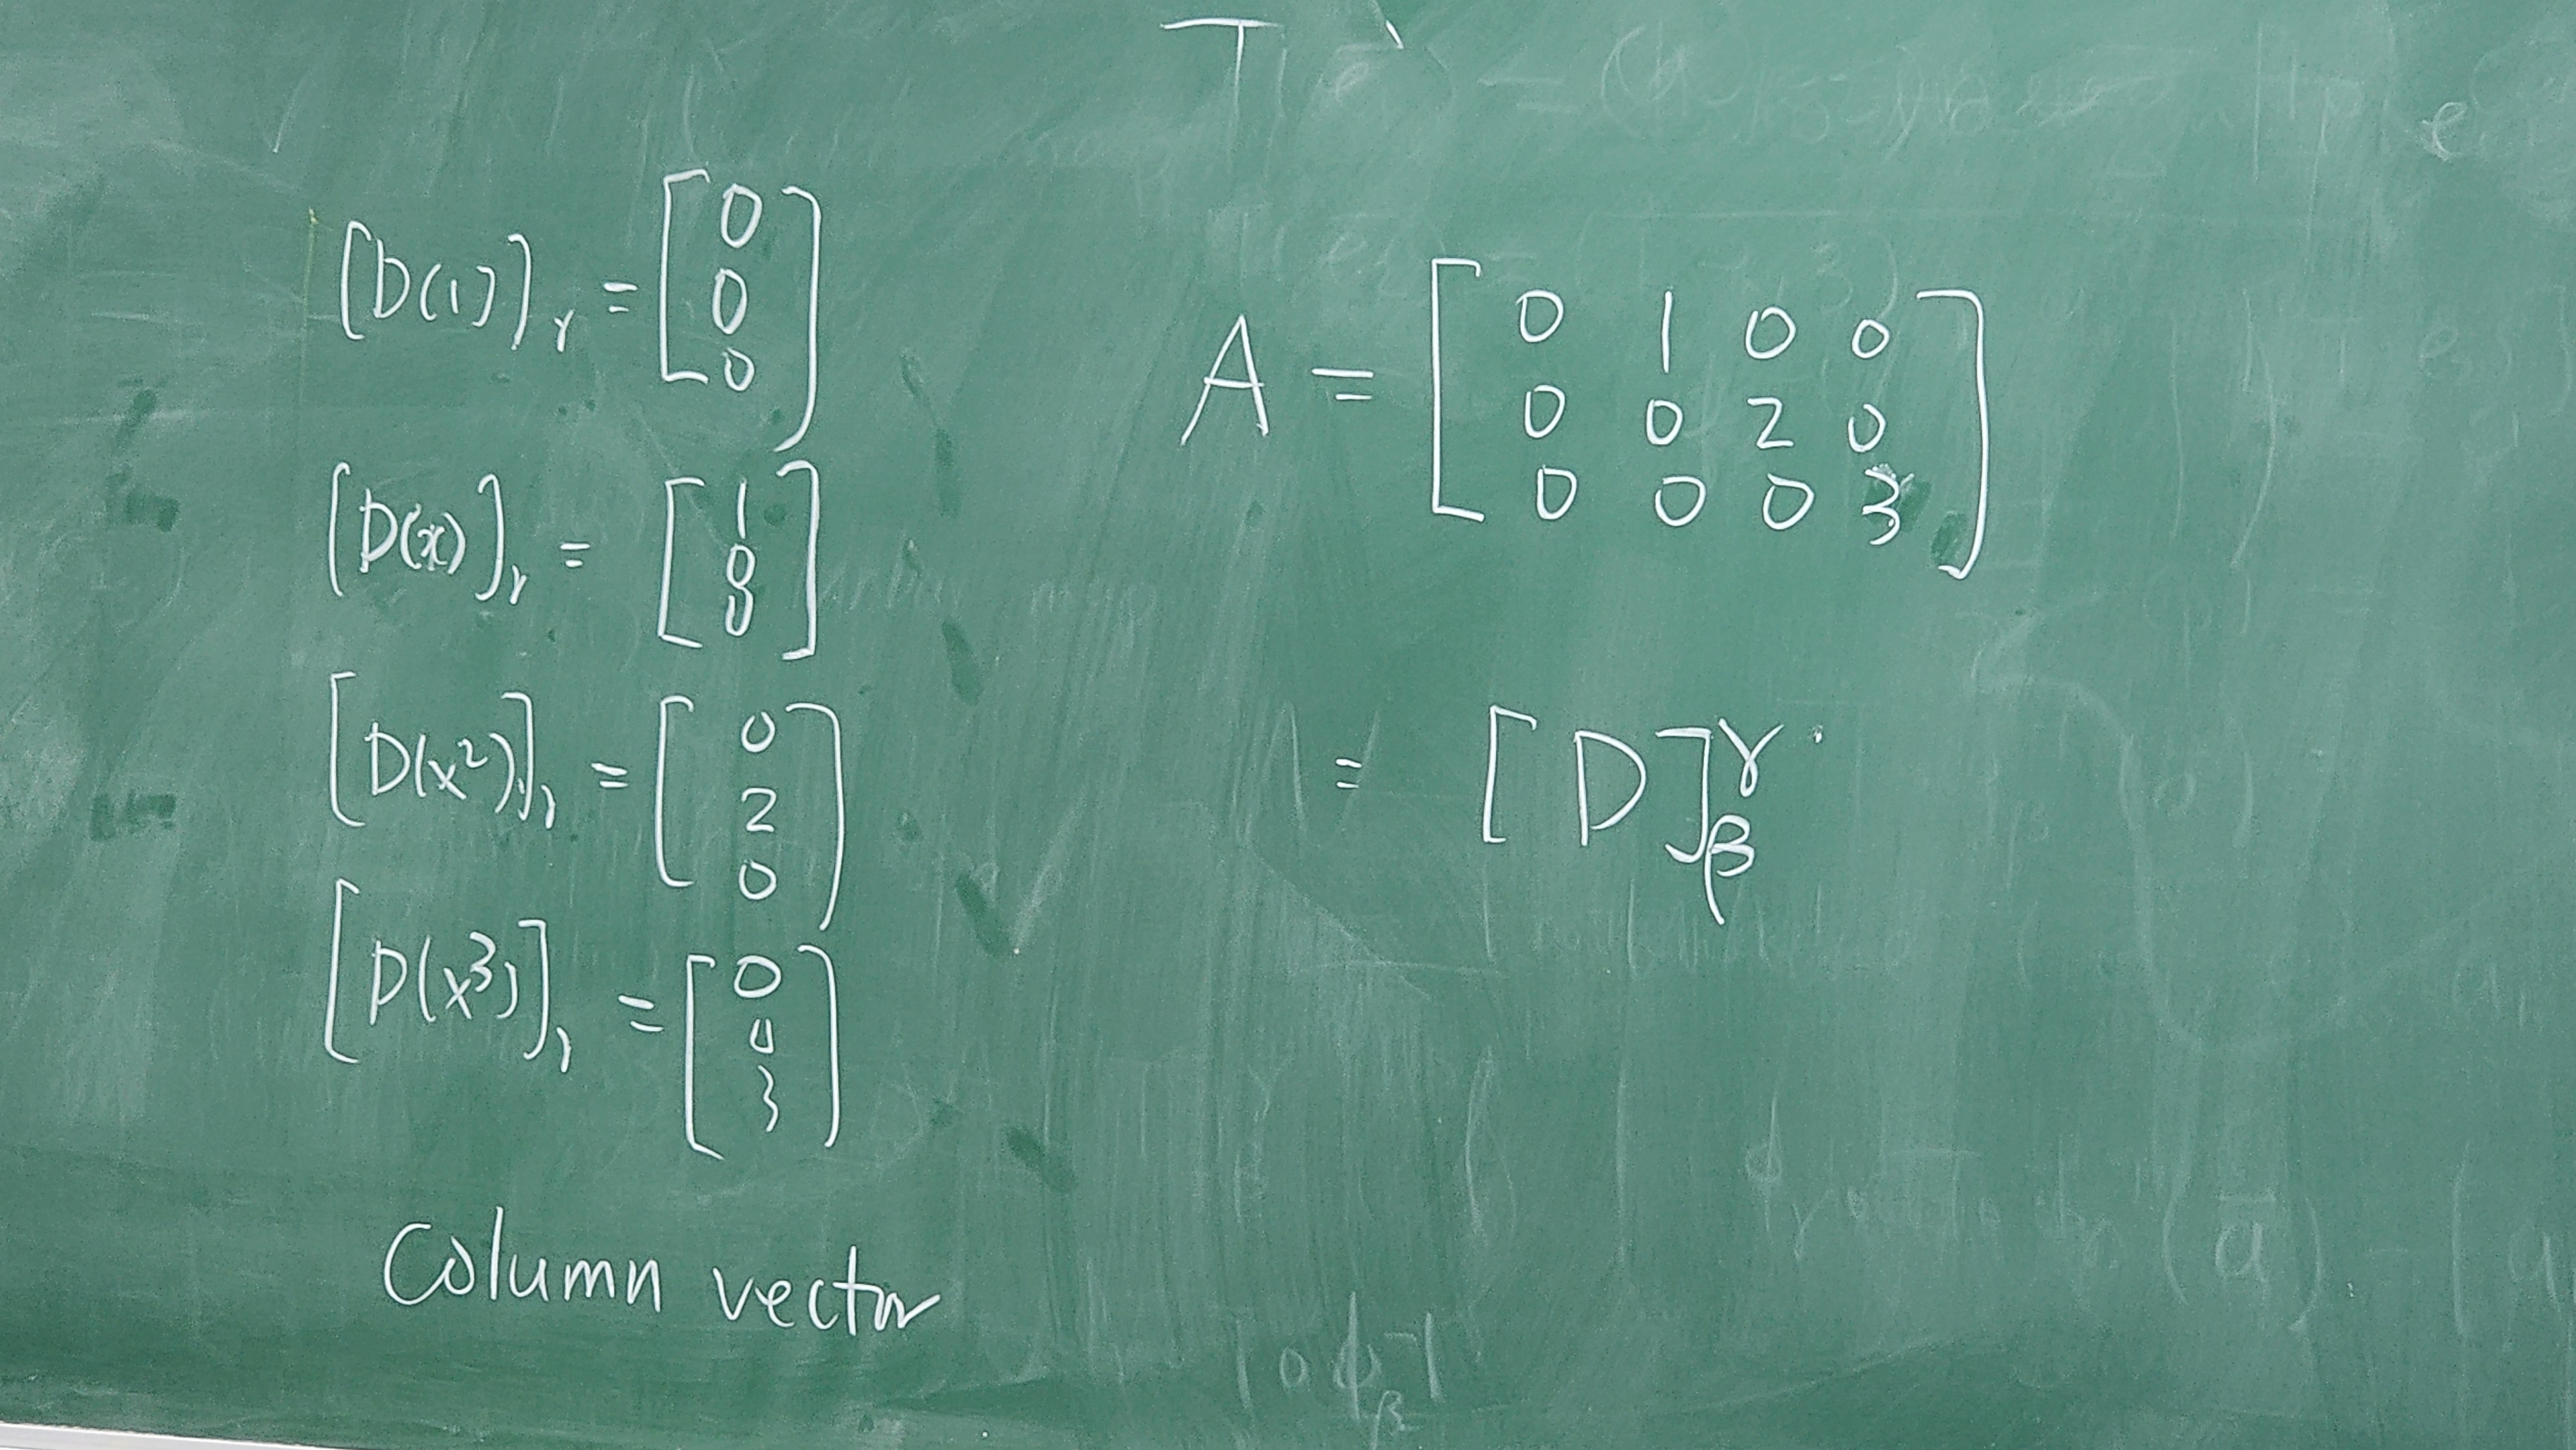 [D(1)]γ = [0 0 0]
[D(x)]γ = [1 0 0]
[D(x²)]γ = [0 2 0]
[D(x³)]γ = [0 0 3]
Column vector
A = [0 1 0 0
0 0 2 0
0 0 0 3]
= [D]γβ